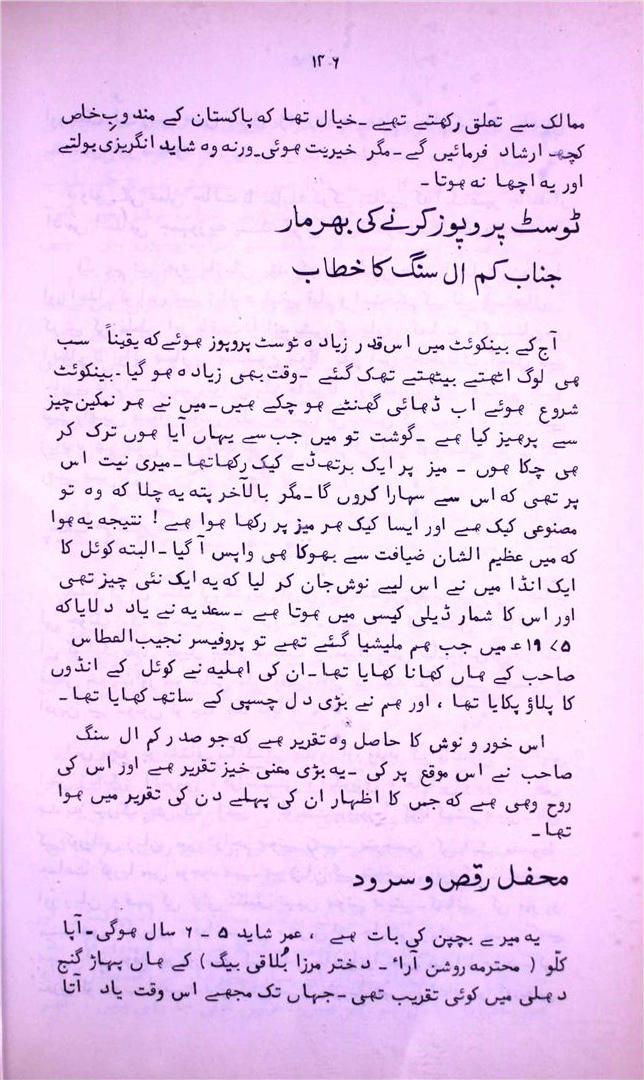 ۱۳۶
ممالک سے تعلق رکھتے تھے ۔ خیال تھا کہ پاکستان کے مندوبِ خاص
کچھ ارشاد فرمائیں گے ۔ مگر خیریت ہوئی ۔ ورنہ وہ شاید انگریزی بولتے
اور یہ اچھا نہ ہوتا ۔
ٹوسٹ پروپوز کرنے کی بھرمار
جناب کم ال سنگ کا خطاب
آج کے بینکوئٹ میں اس قدر زیادہ ٹوسٹ پروپوز ہوئے کہ یقیناً سب
ہی لوگ اٹھتے بیٹھتے تھک گئے ۔ وقت بھی زیادہ ہو گیا ۔ بینکوئٹ
شروع ہوئے اب ڈھائی گھنٹے ہو چکے ہیں ۔ میں نے ہر نمکین چیز
سے پرہیز کیا ہے ۔ گوشت تو میں جب سے یہاں آیا ہوں ترک کر
ہی چکا ہوں ۔ میز پر ایک برتھ ڈے کیک رکھا تھا ۔ میری نیت اس
پر تھی کہ اس سے سہارا کروں گا ۔ مگر بالآخر پتہ یہ چلا کہ وہ تو
مصنوعی کیک ہے اور ایسا کیک ہر میز پر رکھا ہوا ہے ! نتیجہ یہ ہوا
کہ میں عظیم الشان ضیافت سے بھوکا ہی واپس آ گیا ۔ البتہ کوئل کا
ایک انڈا میں نے اس لیے نوش جان کر لیا کہ یہ ایک نئی چیز تھی
اور اس کا شمار ڈیلی کیسی میں ہوتا ہے ۔ سعدیہ نے یاد دلایا کہ
۱۹۷۵ء میں جب ہم ملیشیا گئے تھے تو پروفیسر نجیب العطاس
صاحب کے ہاں کھانا کھایا تھا ۔ ان کی اہلیہ نے کوئل کے انڈوں
کا پلاؤ پکایا تھا ، اور ہم نے بڑی دل چسپی کے ساتھ کھایا تھا ۔
اس خور و نوش کا حاصل وہ تقریر ہے کہ جو صدر کم ال سنگ
صاحب نے اس موقع پر کی ۔ یہ بڑی معنی خیز تقریر ہے اور اس کی
روح وہی ہے کہ جس کا اظہار ان کی پہلے دن کی تقریر میں ہوا
تھا ۔
محفل رقص و سرود
یہ میرے بچپن کی بات ہے ، عمر شاید ۵ ۔ ۶ سال ہوگی ۔ آپا
کلّو ( محترمہ روشن آراء ۔ دختر مرزا بُلاقی بیگ ) کے ہاں پہاڑ گنج
دہلی میں کوئی تقریب تھی ۔ جہاں تک مجھے اس وقت یاد آتا